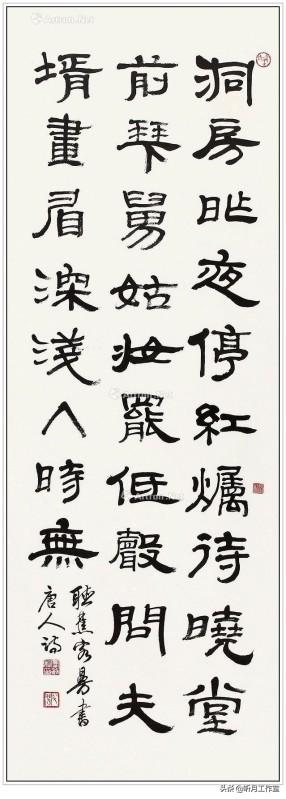 洞房昨夜停紅爥待曉堂
前拜舅姑妝罷低聲問夫
壻畫眉深淺入時無
書
唐人詩
Artron.Net
头条 @听月工作室